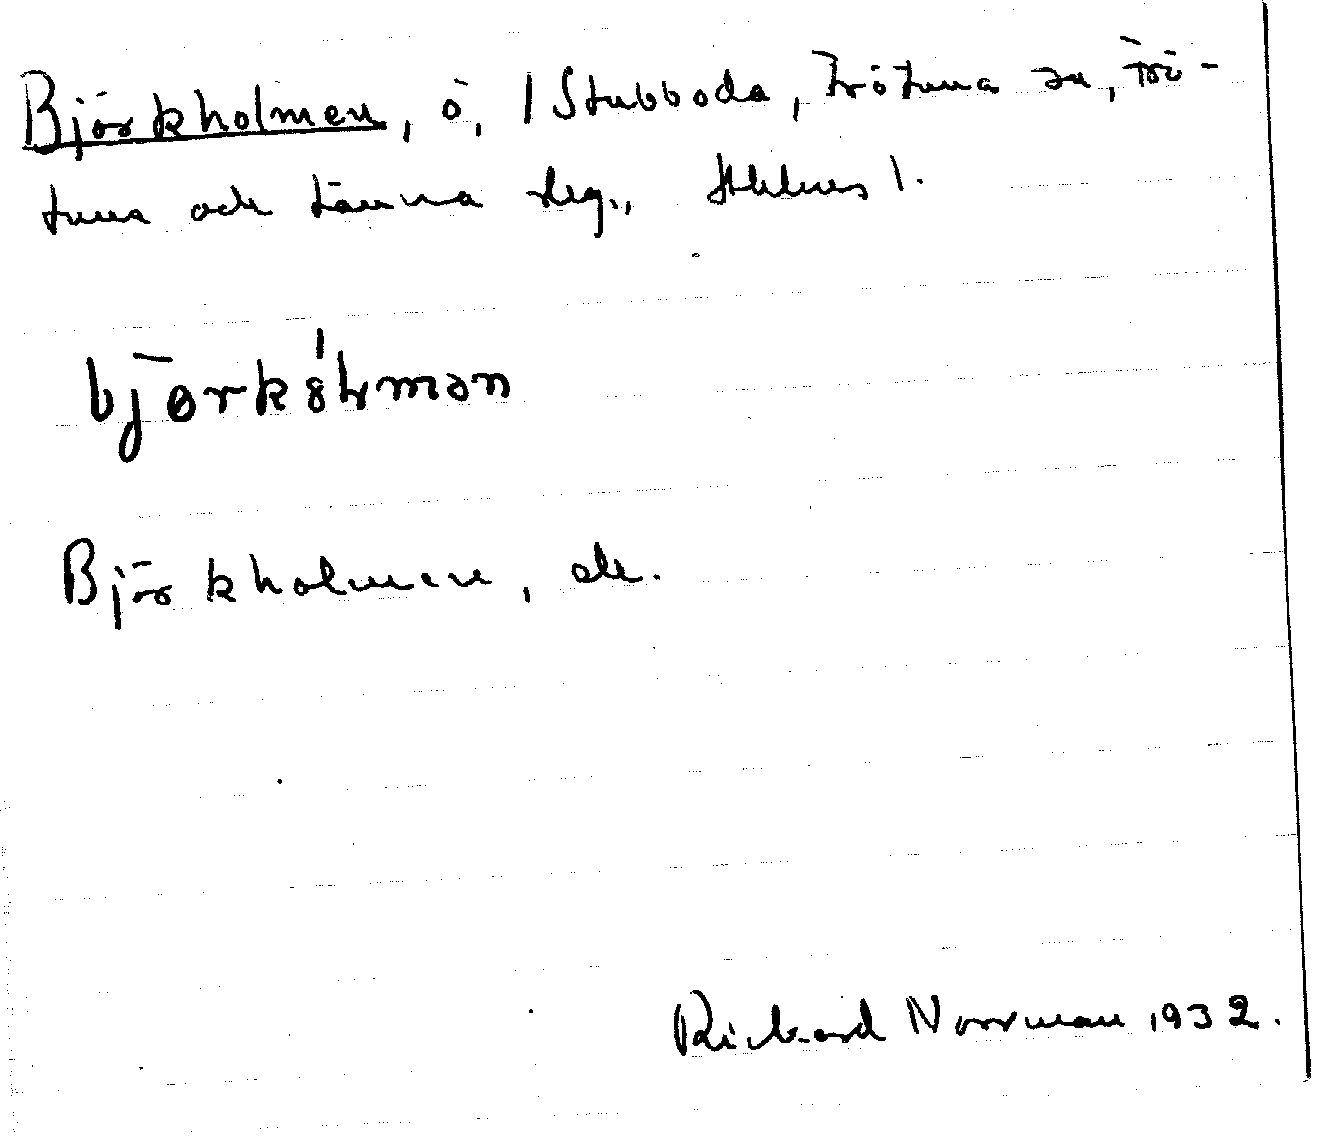 Björkholmen, ö, 1 Stubboda, Frötuna sn, Frö-
tuna och Länna skg., Sthlms l.
bjørkòlmən
Björkholmen, ele.
Richard Norrman 1932.